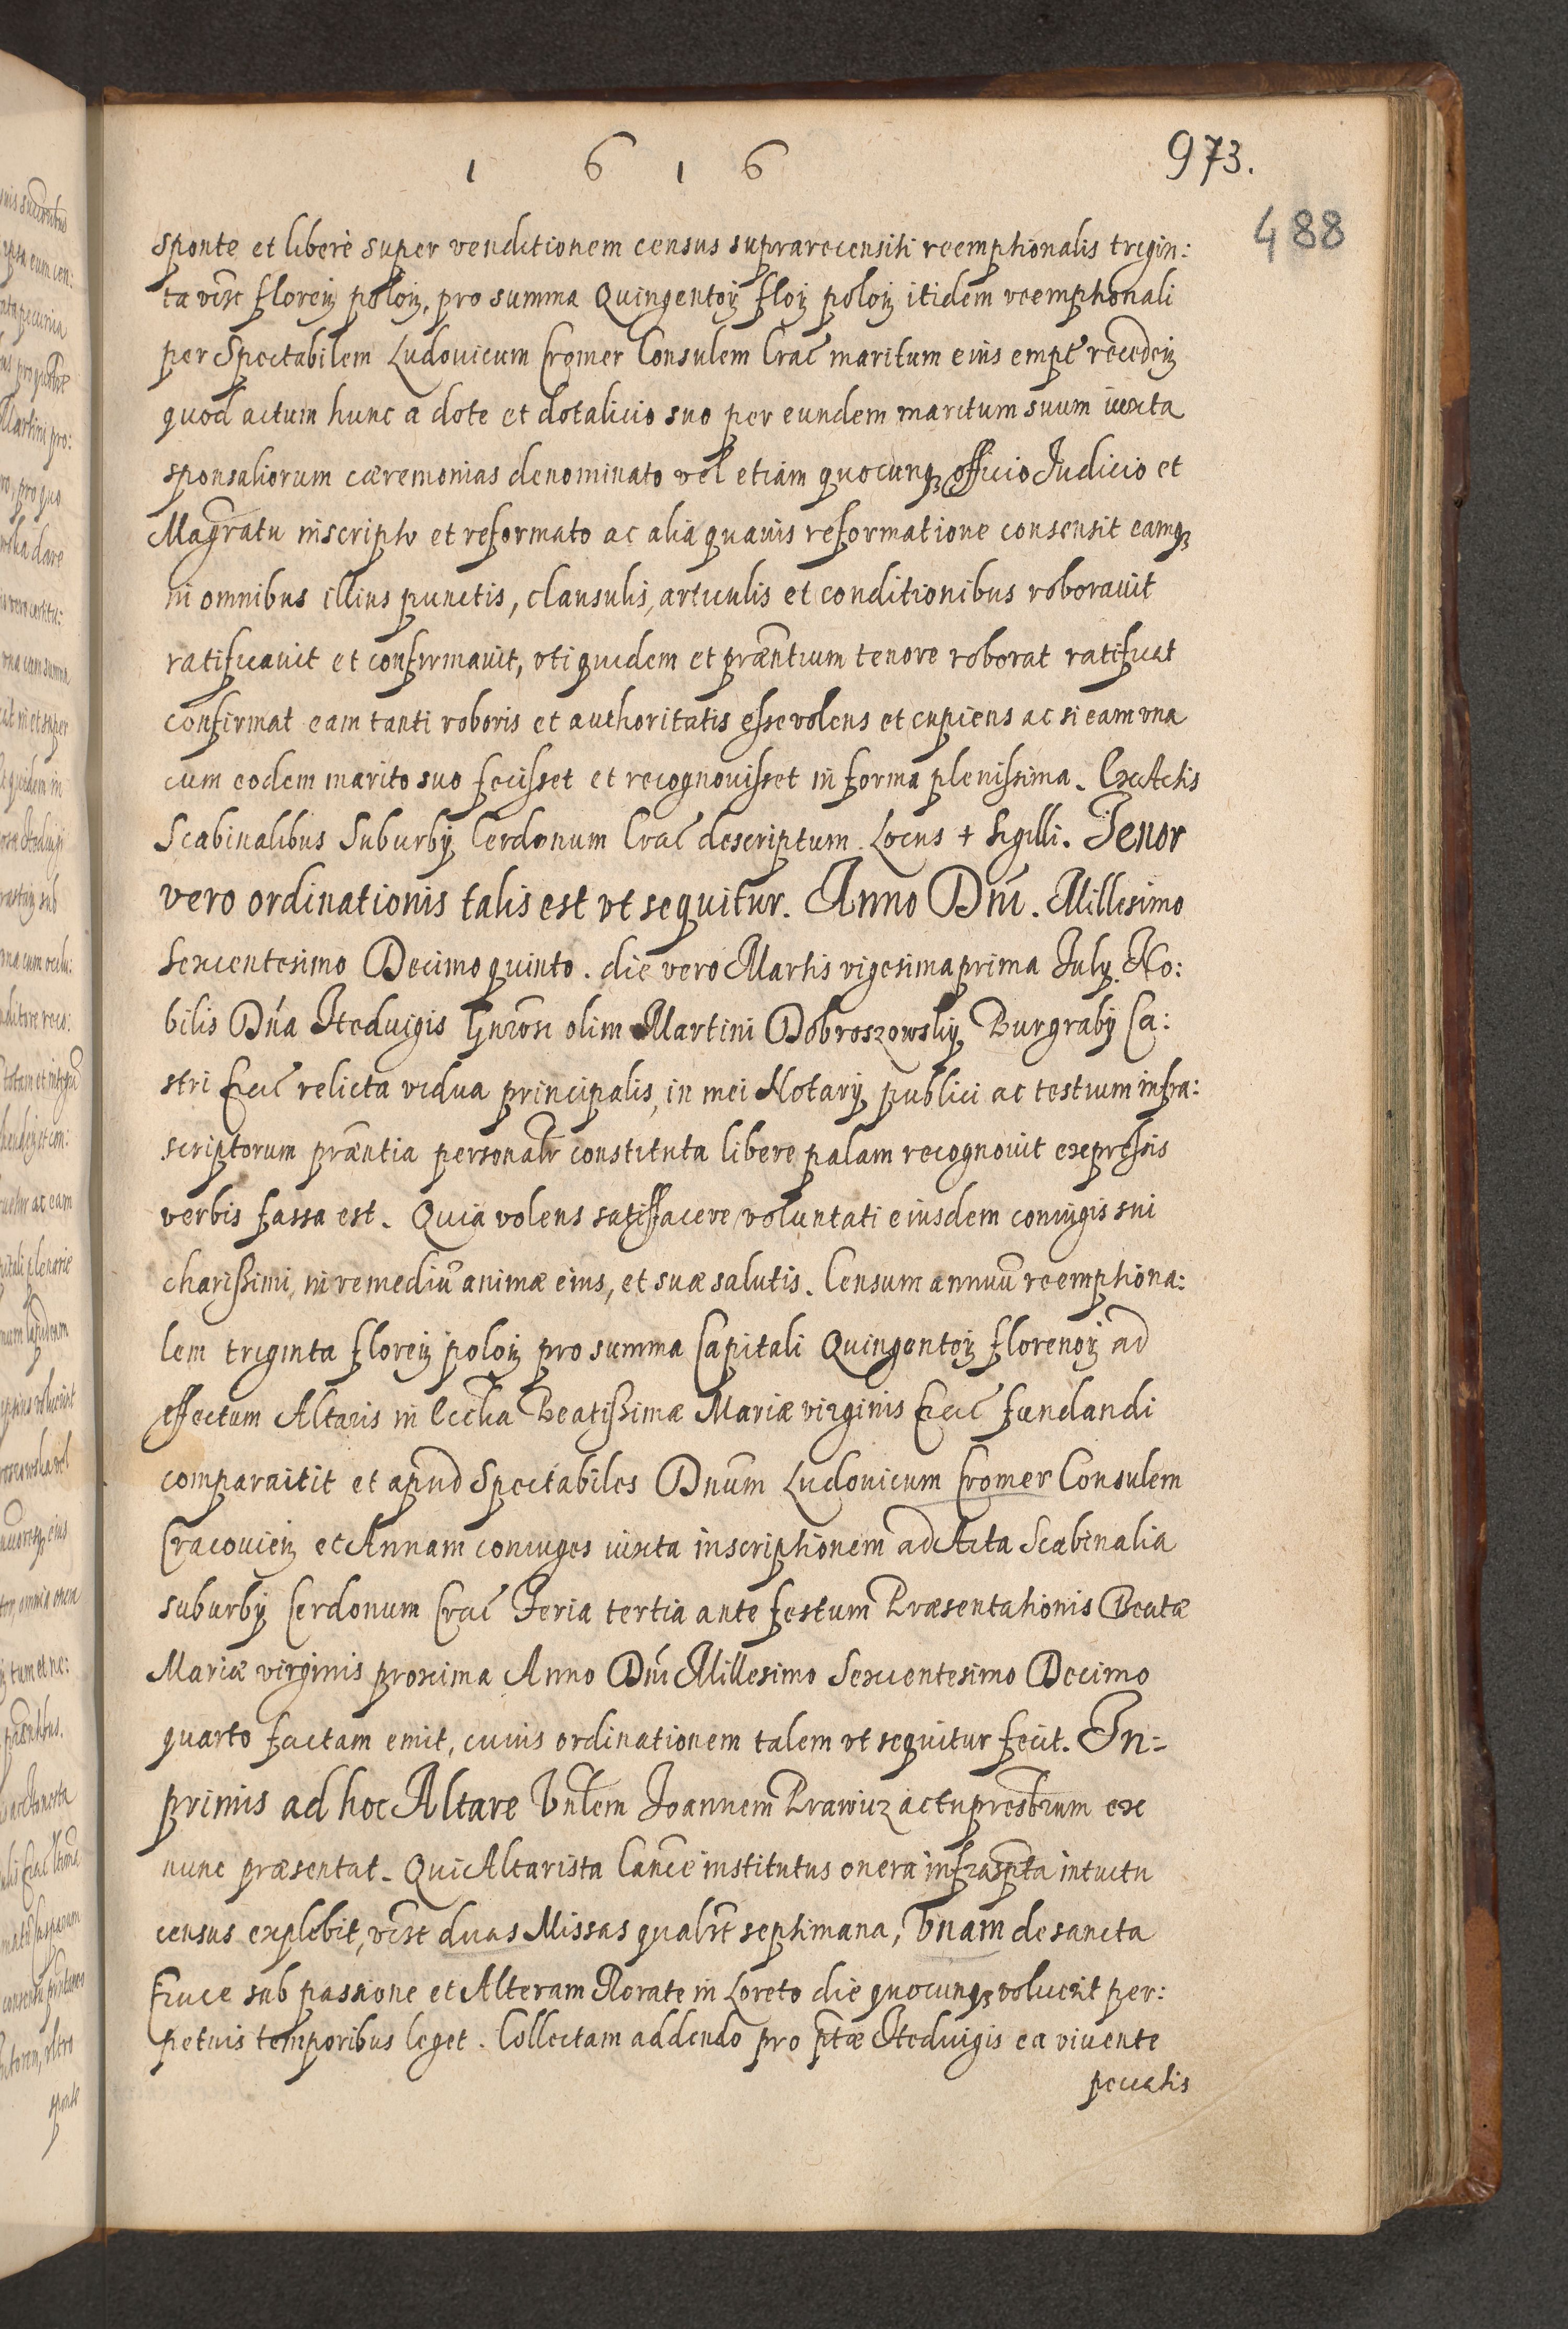 1 6 1 6
973.
488
sponte et liberè super venditionem census suprarecensiti reemptionalis trigin:
ta vēre floreñ poloñ, pro summa Quingentoȝ floȝ poloñ itidem reemptionali
per Spectabilem Ludouicum Cromer Consulem Crač maritum eius empt recedeñ
quod actum hunc a dote et dotalicio suo per eundem maritum suum iuxta
sponsaliorum cæremonias denominato vel etiam quocunqȝ officio Judicio et
Magratu inscripto et reformato ac aliâ quauis reformatione consensit eamqȝ
in omnibus illius punctis, clausulis, articulis et conditionibus roborauit
ratificauit et confirmauit, vti quidem et præntium tenore roborat ratificat
confirmat eam tanti roboris et authoritatis esse volens et cupiens ac si eam vna
cum eodem marito suo fecisset et recognouisset in forma plenissima. Ex Actis
Scabinalibus Suburbÿ Cerdonum Crač descriptum. Locus + Sigilli. Tenor
vero ordinationis talis est vt sequitur. Anno Dni. Millesimo
Sexcentesimo Decimo quinto. die vero Martis vigesima prima Julÿ. No:
bilis Dña Heduigis Gnrosi olim Martini Dobroszowskiÿ Burgrabÿ Ca:
stri Crač relicta vidua principalis, in mei Notarÿ publici ac testium infra:
scriptorum præntia personalr constituta libere palam recognouit expressis
verbis fassa est. Quia volens satisfacere voluntati eiusdem coniugis sui
charissimi, in remediũ animæ eius, et suæ salutis. Censum annuũ reemptiona:
lem triginta floreñ poloñ pro summa Capitali Quingentoȝ florenoȝ ad
effectum Altaris in Ecclia Beatissimæ Mariæ virginis Crač fundandi
comparauit et apud Spectabiles Dnum Ludouicum Cromer Consulem
Cracouieñ et Annam coniuges iuxta inscriptionem ad Acta Scabinalia
suburbÿ Cerdonum Crač Feria tertia ante festum Præsentationis Beatæ
Mariæ virginis proxima Anno Dñi Millesimo Sexcentesimo Decimo
quarto factam emit, cuius ordinationem talem vt sequitur fecit. In-
primis ad hoc Altare Vnlem Joannem Prawicz actu presbrum ex
nunc præsentat. Qui Altarista Cance institutus onera infraspta intuitu
census explebit, vēre duas Missas qualrt septimana, Vnam de sancta
Cruce sub passione et Alteram Rorate in Loreto die quocunqȝ voluerit per:
petuis temporibus leget. Collectam addendo pro ptæ Heduigis ea viuente
peccatis